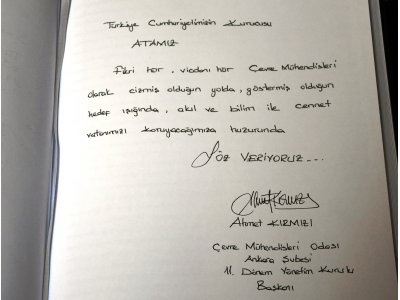 Türkiye Cumhuriyetimizin Kurucusu
ATAMIZ
Fikri hür, vicdanı hür Çevre Mühendisleri
olarak çizmiş olduğun yolda, göstermiş olduğun
hedef ışığında, akıl ve bilim ile cennet
vatanımızı koruyacağımıza huzurunda
SÖZ VERİYORUZ...
Ahmet KIRMIZI
Çevre Mühendisleri Odası
Ankara Şubesi
11. Dönem Yönetim Kurulu
Başkanı